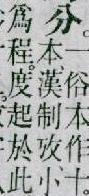 一俗本作十
分。本漢制攷小
爲程度起於此